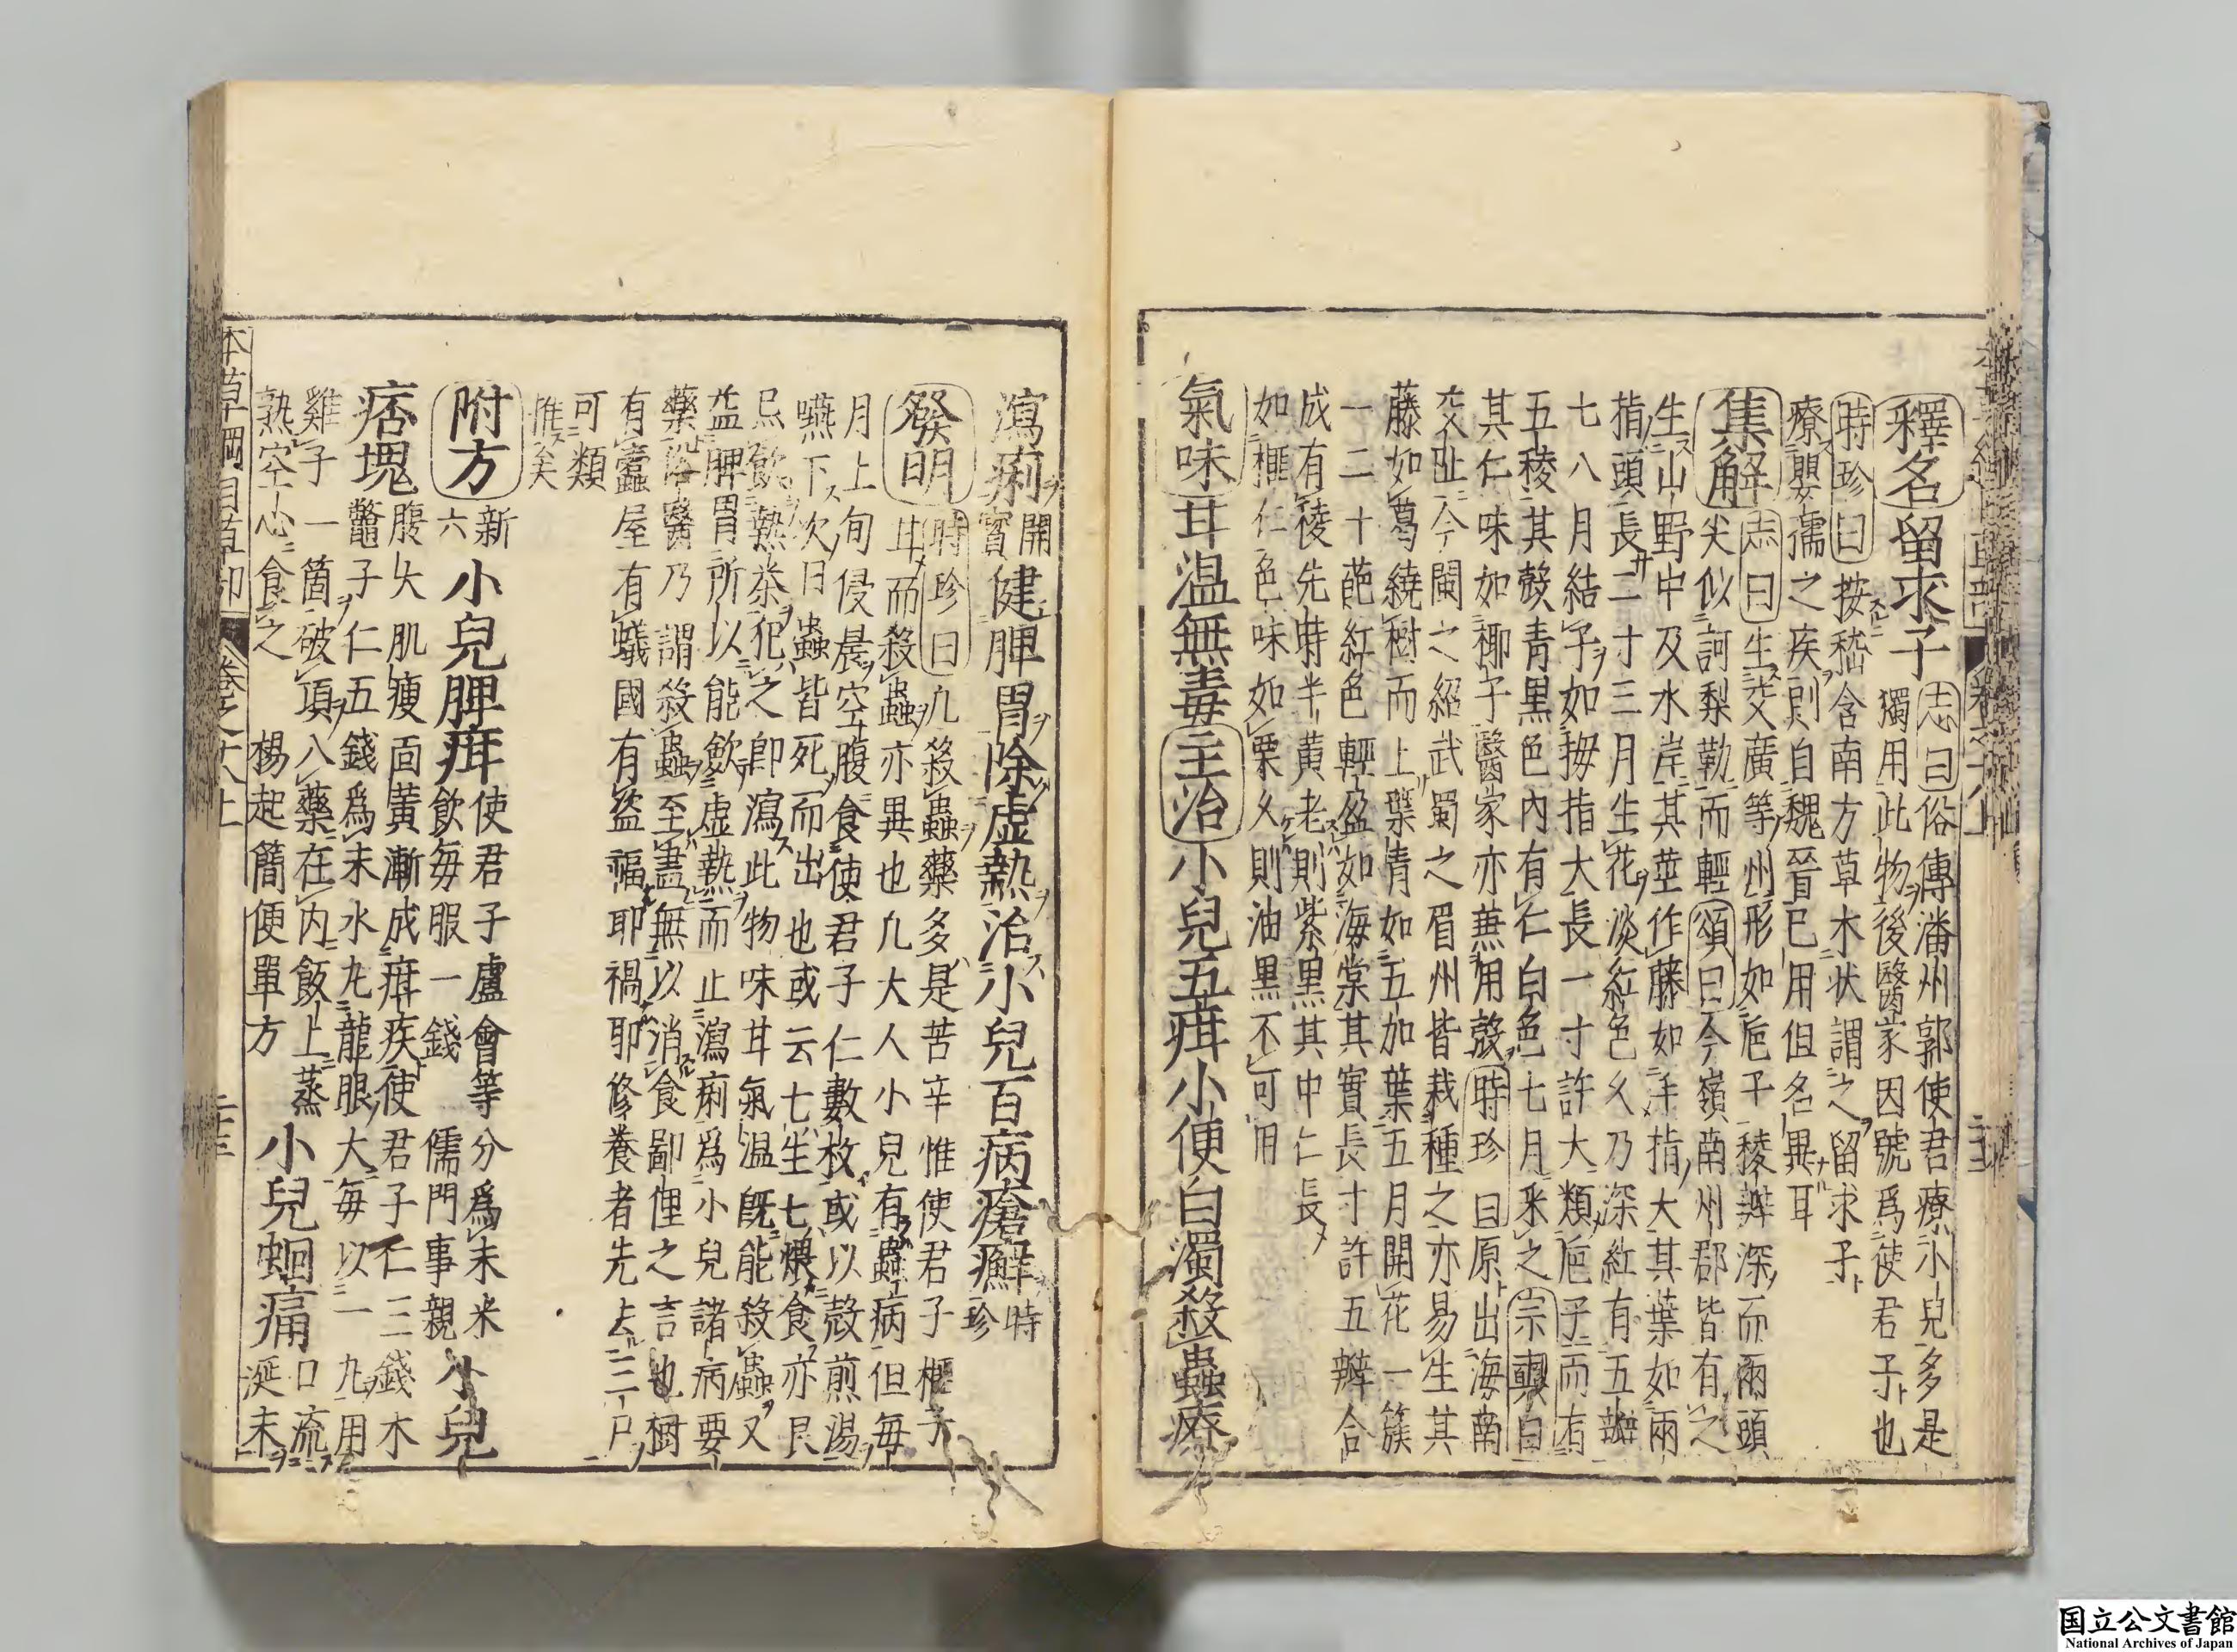 釋名留求子志曰俗傳潘州郭使君療小兒多是
獨用此物後醫家因號爲使君子也
時珍曰按嵇含南方草木状謂之留求子
療嬰孺之疾則自魏晉已用但名異耳
集解志曰生交廣等州形如巵子稜瓣深而兩頭
尖似訶梨勒而輕頌曰今嶺南州郡皆有之
生山野中及水岸其莖作藤如手指大其葉如兩
指頭長二寸三月生花淡紅色久乃深紅有五瓣
七八月結子如拇指大長一寸許大類巵子而有
五稜其殼青黑色内有仁白色七月釆之宗奭曰
其仁味如椰子醫家亦兼用殼時珍曰原出海南
交趾今閩之紹武蜀之眉州皆栽種之亦易生其
藤如葛繞樹而上葉青如五加葉五月開花一簇
一二十葩紅色輕盈如海棠其實長寸許五瓣合
成有稜先時半黄老則紫黑其中仁長
如榧仁色味如栗久則油黑不可用
氣味甘温無毒主治小兒五疳小便白濁殺蟲療
瀉痢開寳健脾胃除虚熱治小兒百病瘡癬時珍
發明時珍曰凡殺蟲藥多是苦辛惟使君子榧子
甘而殺蟲亦異也凡大人小兒有蟲病但毎
月上旬侵晨空腹食使君子仁數枚或以殼煎湯
嚥下次日蟲皆死而出也或云七生七煨食亦良
忌飲熱茶犯之即瀉此物味甘氣温既能殺蟲又
益脾胃所以能飲虚熱而止瀉痢爲小兒諸病要
藥俗醫乃謂殺蟲至盡無以消食鄙俚之言也樹
有蠧屋有蟻國有盗福耶禍耶修養者先去三尸
可類
推矣
附方新六小兒脾疳使君子盧會等分爲末米飲毎服一錢儒門事親小兒
痞塊腹大肌痩面黄漸成疳疾使君子仁三錢木
鼈子仁五錢爲末水丸龍眼大毎以一丸用
雞子一箇破頂入藥在内飯上蒸
熟空心食之楊起簡便單方小兒蛔痛口流涎末
本草綱目草部卷之十八上